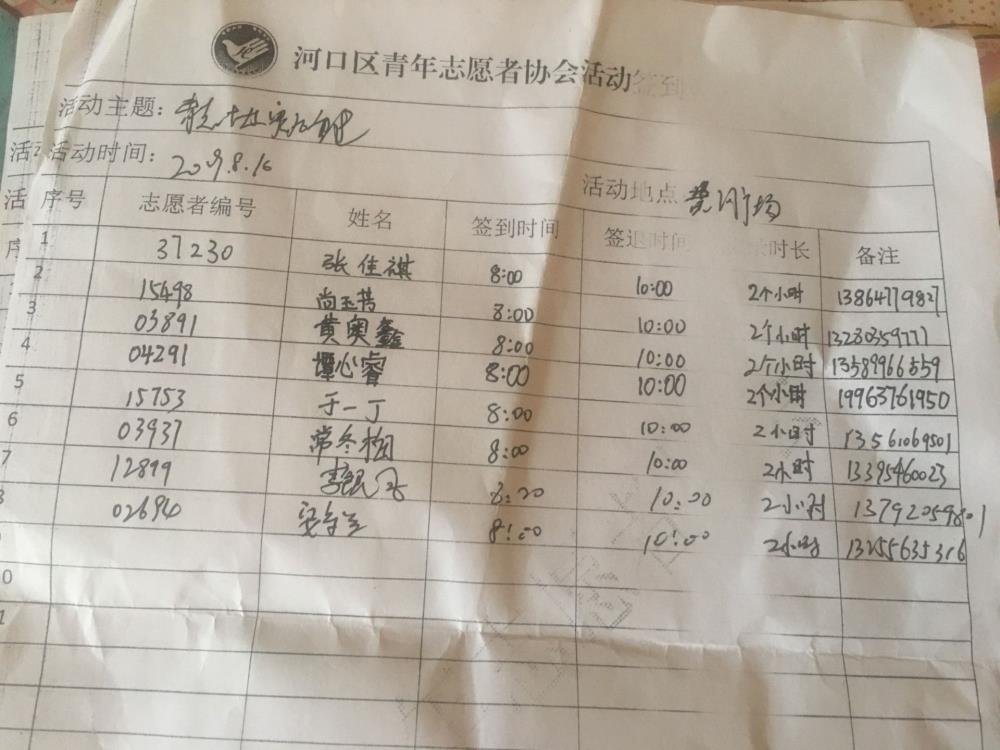 河口区青年志愿者协会活动签到
活动主题：
活动时间： 2019.8.16 活动地点
序号 志愿者编号 姓名 签到时间 签退时间 时长 备注
1 37230 张佳祺 8:00 10:00 2个小时 13864779827
2 15498 尚玉芳 8:00 10:00 2个小时 13280359777
3 03891 黄奥鑫 8:00 10:00 2个小时 13589966559
4 04291 谭心睿 8:00 10:00 2个小时 19963761950
5 15753 于一丁 8:00 10:00 2小时 13561069501
6 03937 常冬梅 8:00 10:00 2小时 13395460023
7 12899 李银 8:20 10:00 2小时 13792059801
02694 8:00 10:00 2小时 13255635316
0
1